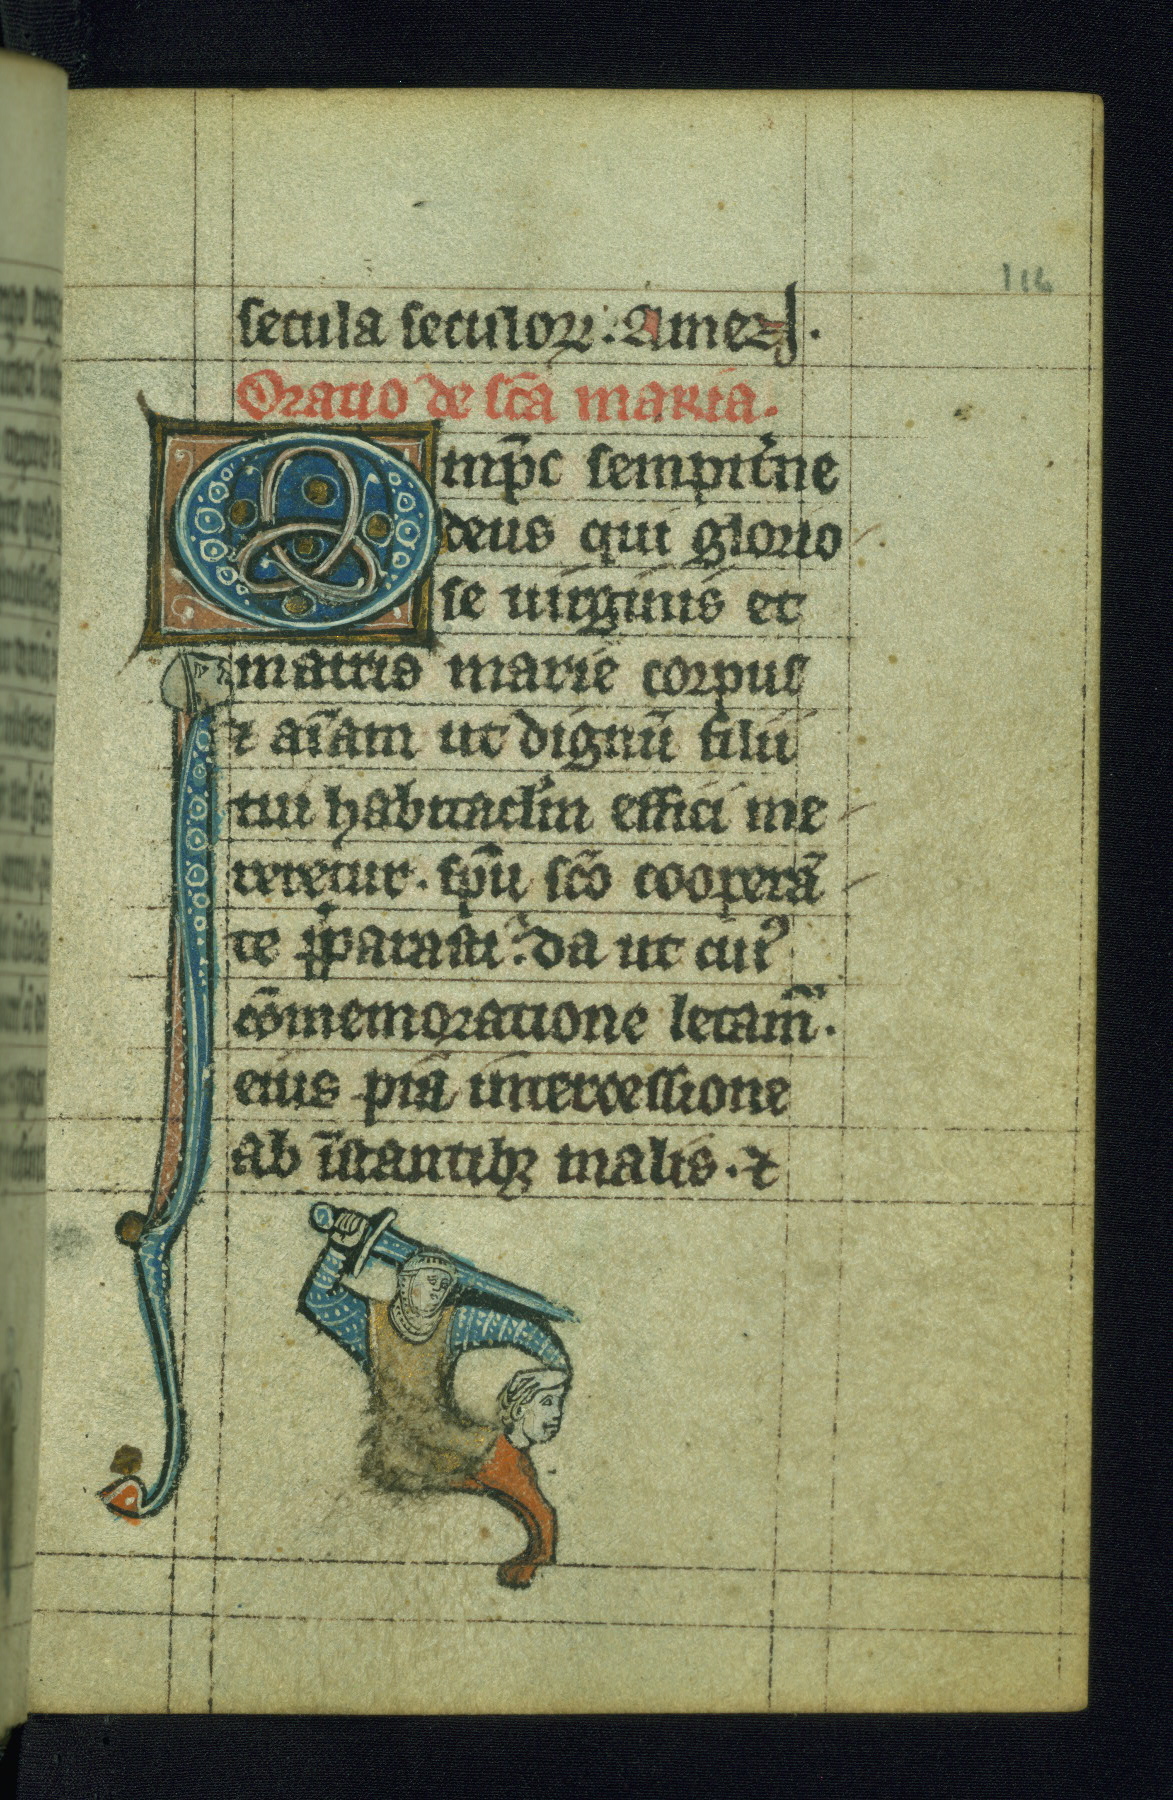 116
secula seculoꝝ. Amen.
Oratio de sc̃a maria.
Omp̃c sempit̾ne
deus qui glorio
se uirginis et
matris marie corpus
⁊ aĩam ut dignũ filii
tui habitacl̃m effici me
reretur. sp̃u sc̃o cooperã
te p̃parasti. da ut cuiꝰ
cõmemoratione letam̃.
eius pia intercessione
ab ĩstantibꝫ malis. ⁊